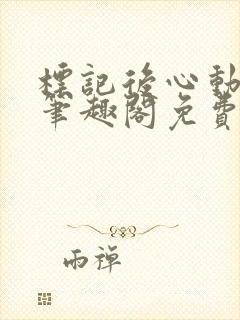 標記後心動
筆趣閣免費
雨禪